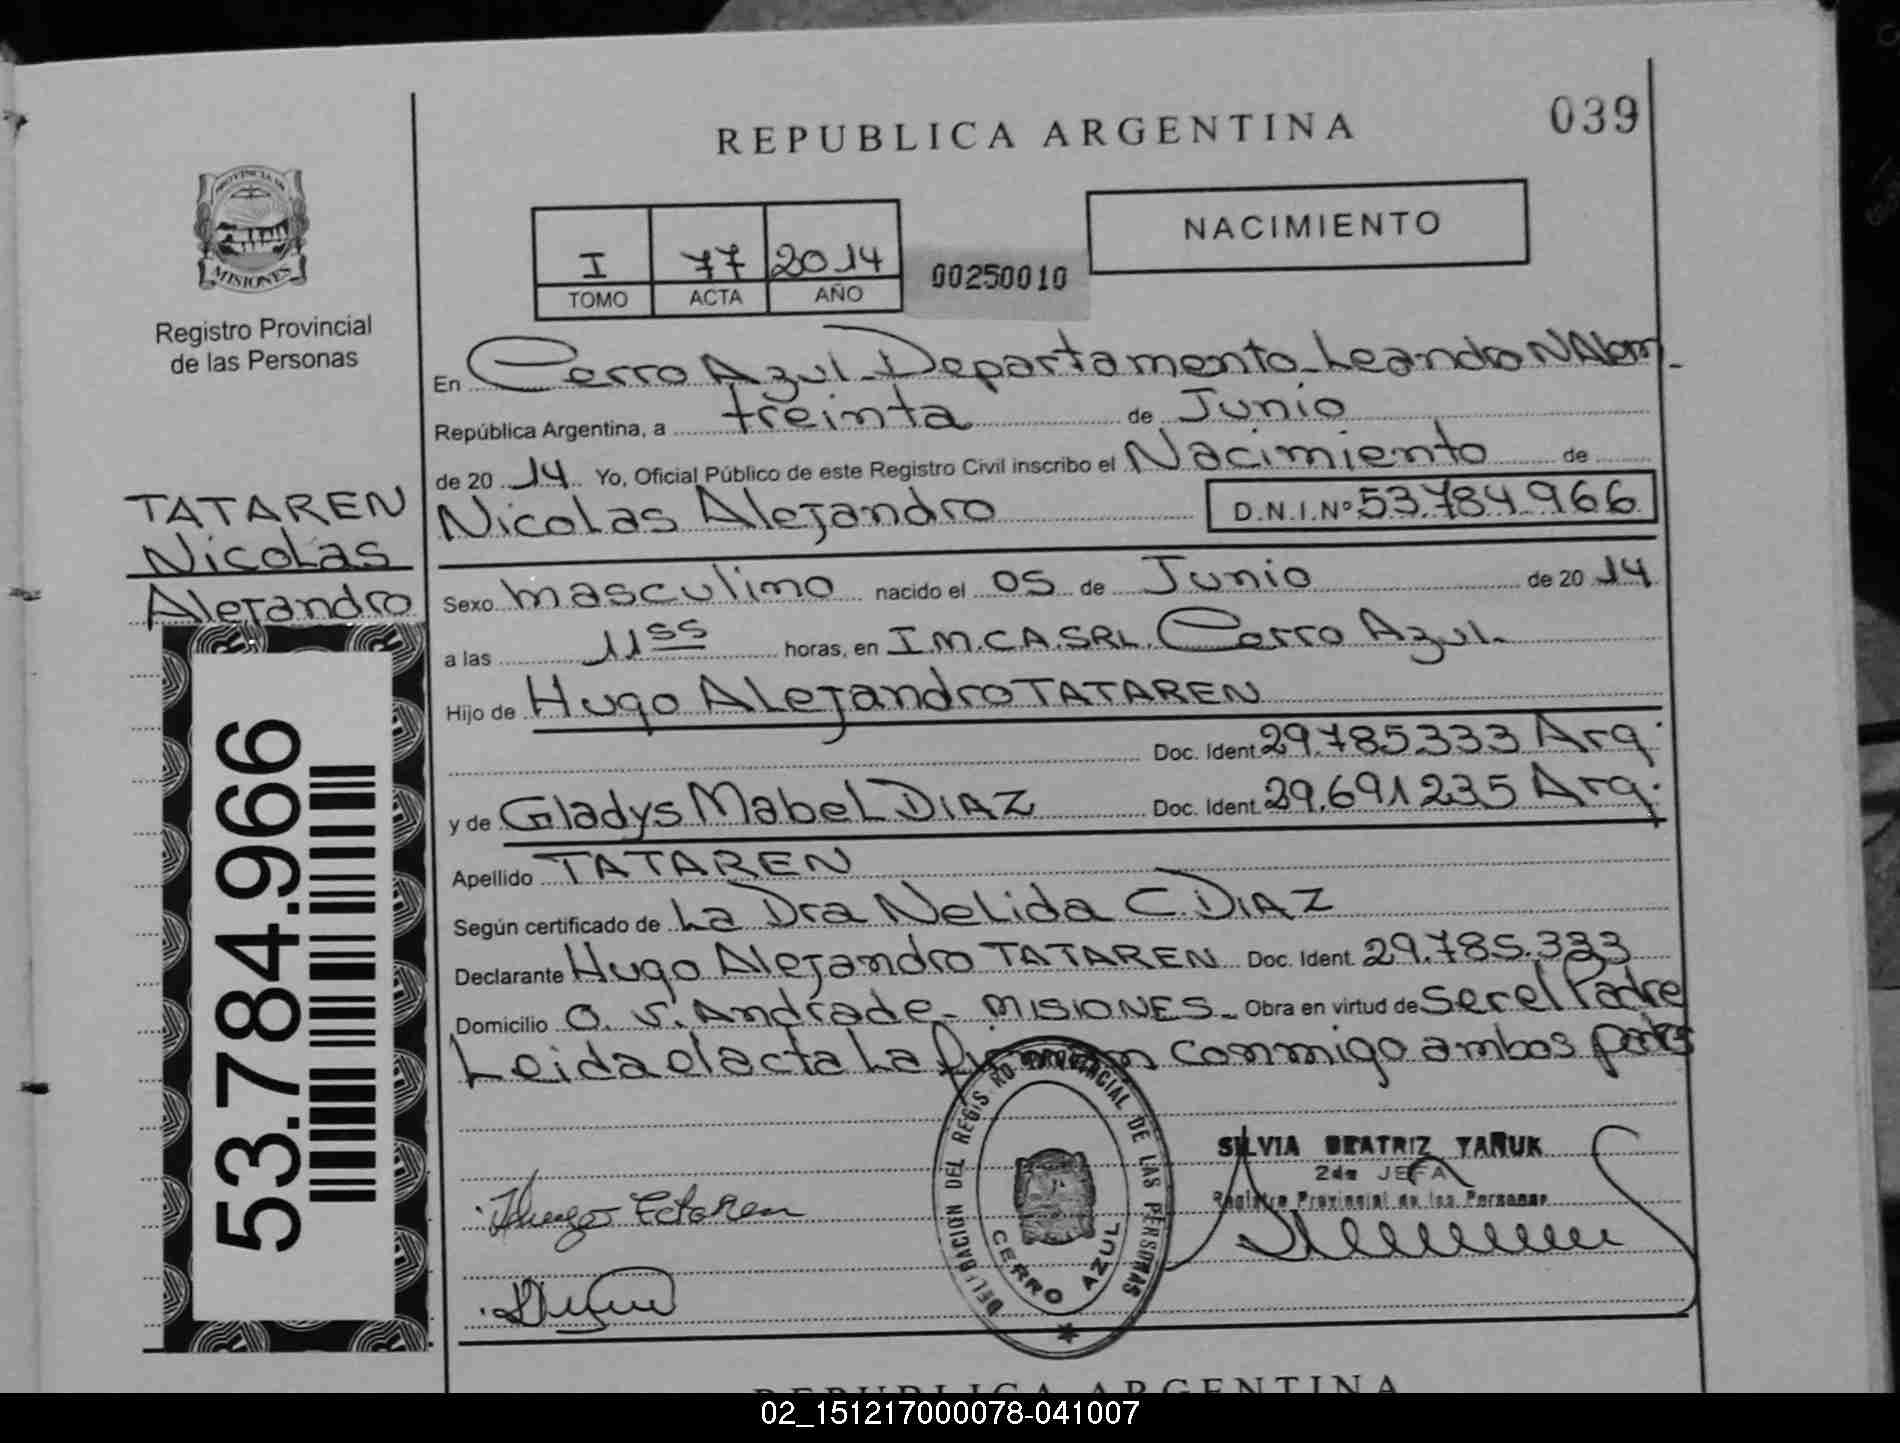 REPUBLICA ARGENTINA
039
PROVINCIA DE
MISIONES
Registro Provincial
de las Personas
NACIMIENTO
I 77 2014
TOMO ACTA AÑO
00250010
En Cerro Azul-Departamento-Leandro N Alem-
República Argentina, a treinta de Junio
de 20 14 Yo, Oficial Público de este Registro Civil inscribo el Nacimiento de
Nicolas Alejandro D.N.I.Nº 53.784.966
TATAREN
Nicolas
Alejandro
Sexo masculino nacido el 05 de Junio de 20 14
a las 11 55 horas, en I.M.C.A.SRL. Cerro Azul.
Hijo de Hugo Alejandro TATAREN
Doc. Ident. 29.785.333 Arg.
y de Gladys Mabel DIAZ Doc. Ident. 29.691.235 Arg.
Apellido TATAREN
Según certificado de La Dra Nelida C. DIAZ
Declarante Hugo Alejandro TATAREN Doc. Ident. 29.785.333
Domicilio O. V. Andrade- MISIONES- Obra en virtud de Ser el Padre
Leida el acta La firman conmigo ambos padres
53.784.966
DELEGACION DEL REGISTRO PROVINCIAL DE LAS PERSONAS
CERRO AZUL
SILVIA BEATRIZ YAÑUK
2da JEFA
Registro Provincial de las Personas
Hugo Tataren
REPUBLICA ARGENTINA
02_151217000078-041007